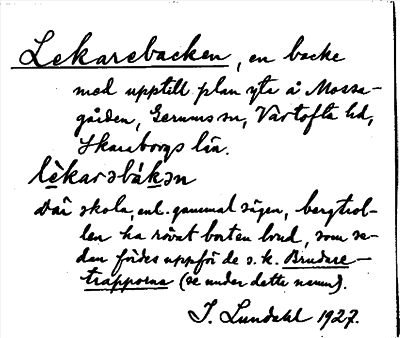 Lekarebacken, en backe
med upptill plan yta å Mossa-
gården, Gerums sn, Vartofta hd,
Skaraborgs län.
lèkarəbákən
Där skola, enl. gammal sägen, bergtrol-
len ha rövat borten brud, som se-
dan fördes uppför de s.k. Brudare-
trapporna (se under detta namn).
J. Lundahl 1927.